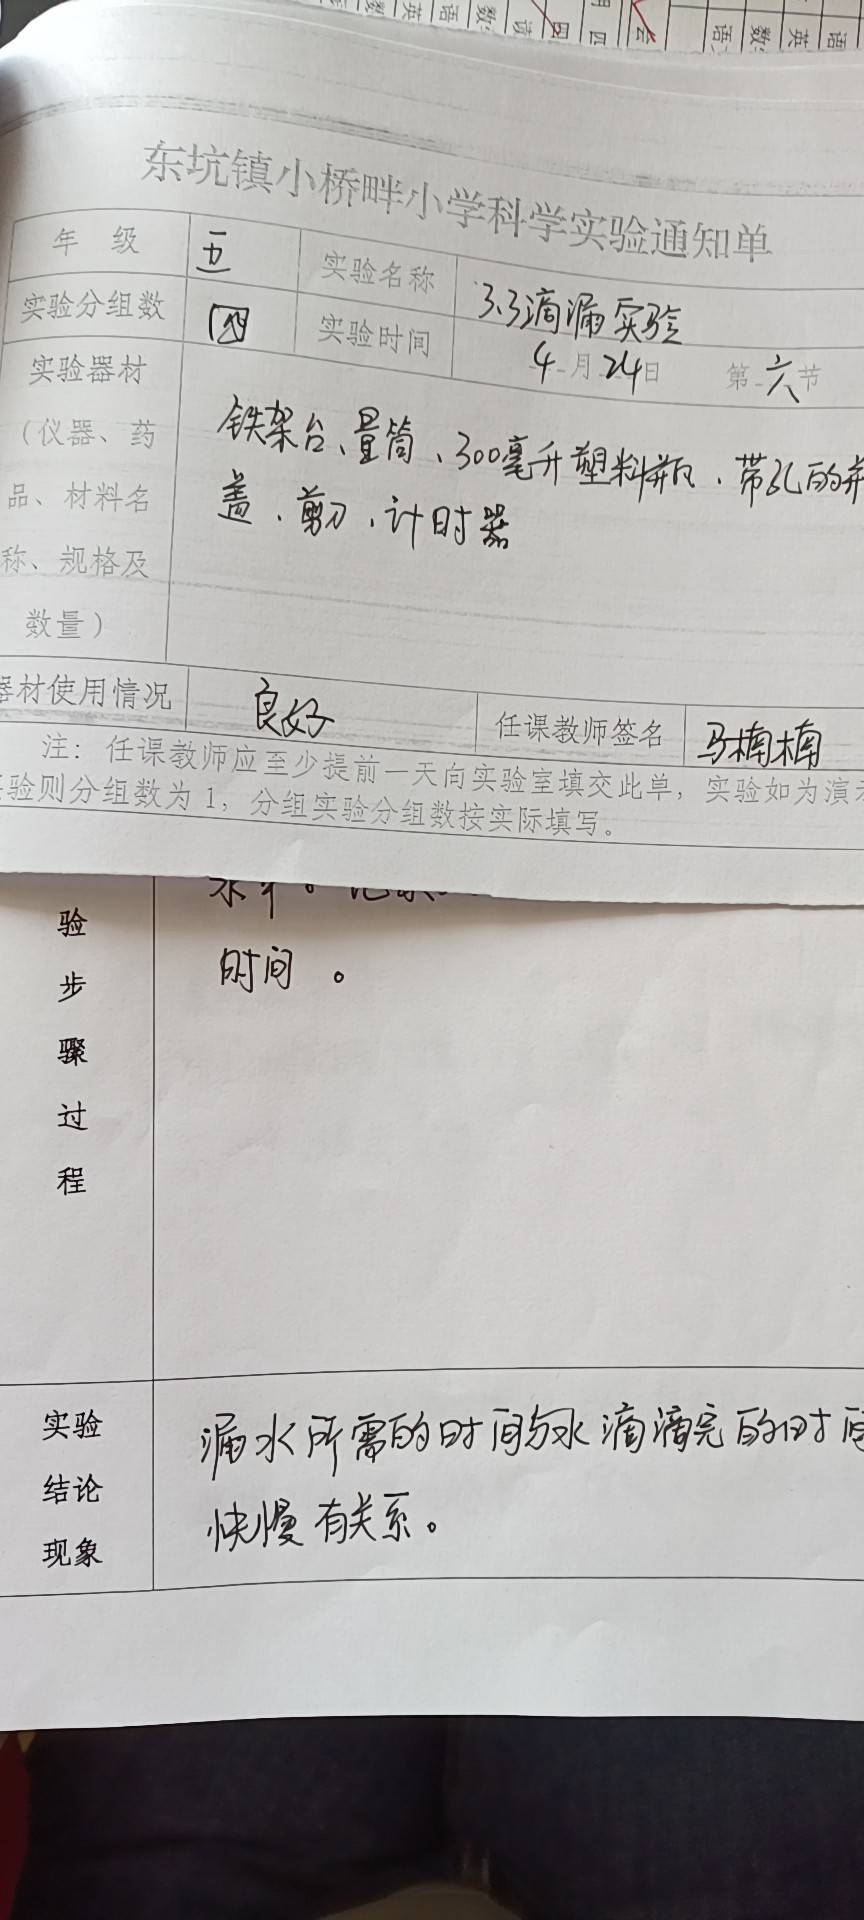 东坑镇小桥畔小学科学实验通知单
年 级 五 实验名称 3.3滴漏实验
实验分组数 四 实验时间 4月24日 第六节
实验器材
（仪器、药
品、材料名
称、规格及
数量）
铁架台、量筒、300毫升塑料瓶、带孔的
盖、剪刀、计时器
器材使用情况 良好 任课教师签名 马楠楠
注：任课教师应至少提前一天向实验室填交此单，实验如为演示
验则分组数为1，分组实验分组数按实际填写。
时间。
验
步
骤
过
程
实验
结论
现象
漏水所需的时间与水滴滴完的时间
快慢有关系。